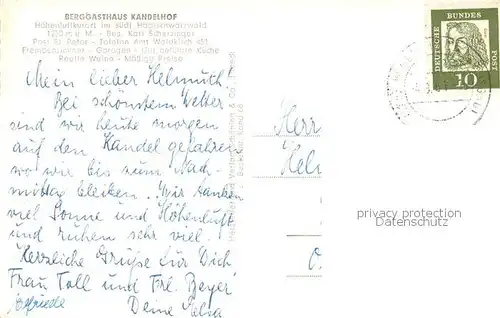 BERGGASTHAUS KANDELHOF
Höhenluftkurort im südl. Hochschwarzwald
1250 m ü. M. - Bes. Karl Scherzinger
Post St. Peter - Telefon Amt Waldkirch 451
Fremdenzimmer - Garagen - Gut geführte Küche
Reelle Weine - Mäßige Preise
Mein lieber Helmuth!
Bei schönstem Wetter
sind wir heute morgen
auf den Kandel gefahren
wo wir bis zum Nach-
mittag bleiben. Wir tanken
viel Sonne und Höhenluft
und ruhen sehr viel.
Herzliche Grüße für Dich
Frau Toll und Frl. Beyer
Deine
DEUTSCHE BUNDES POST
10
Herr
Hel
privacy protection
Datenschutz